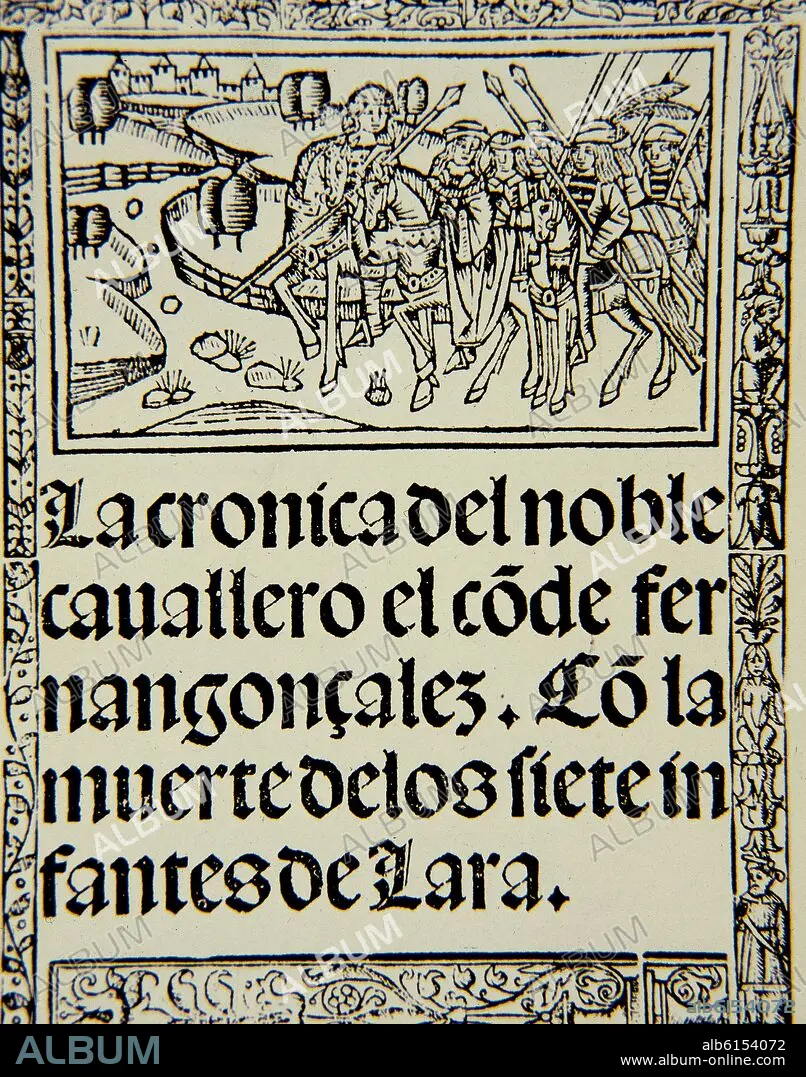 La cronica del noble
cauallero el cõde fer
nangonçalez. Cõ la
muerte delos siete in
fantes de Lara.
ALBUM
alb6154072
www.album-online.com